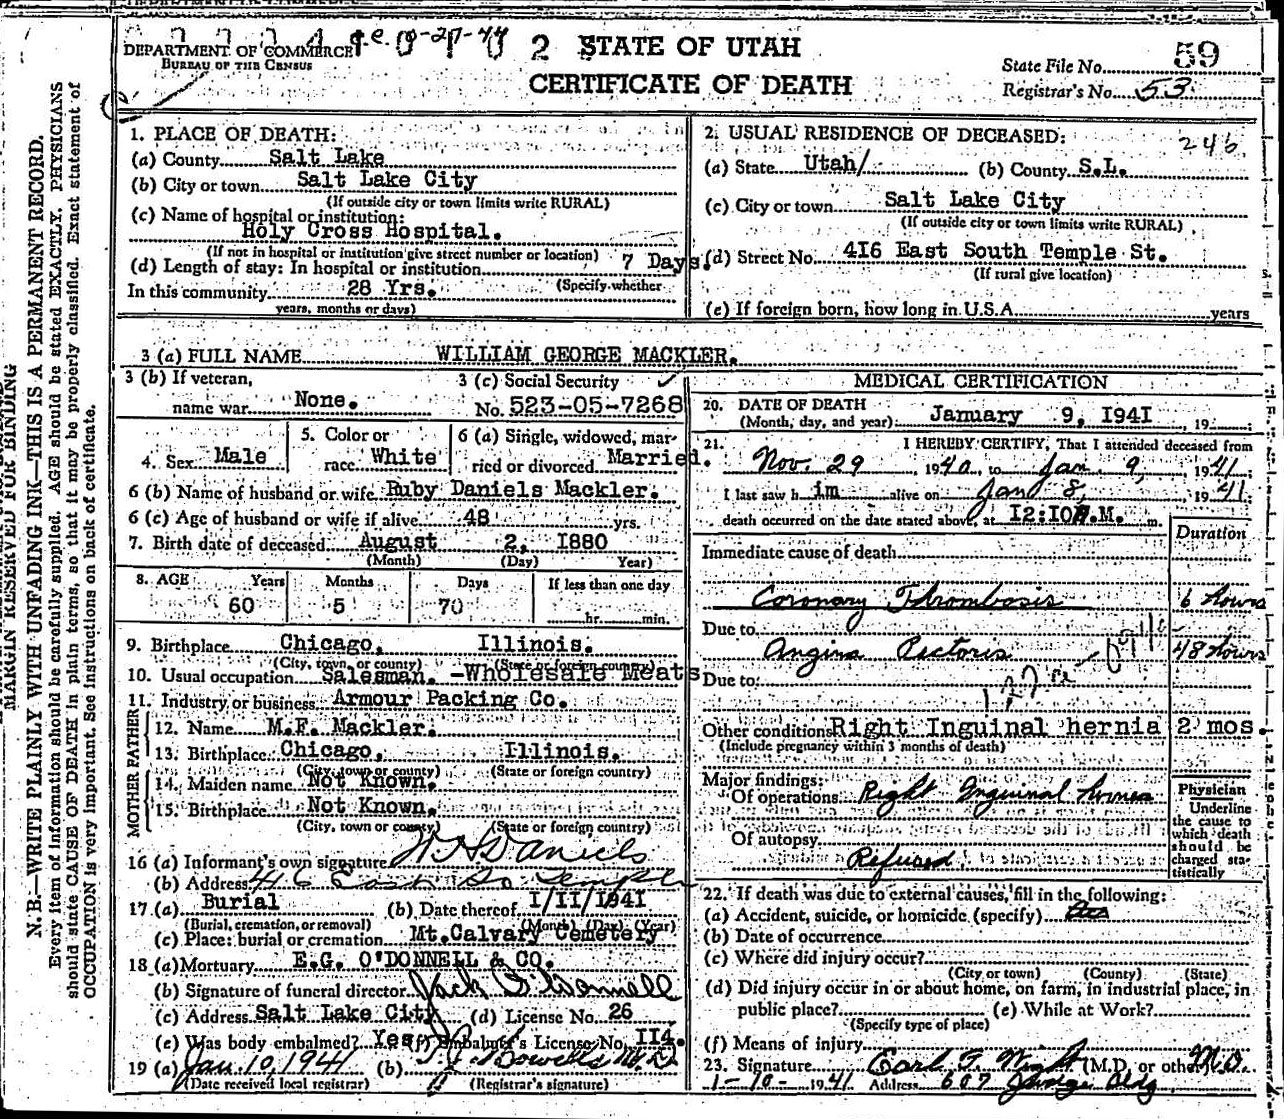 DEPARTMENT OF COMMERCE
BUREAU OF THE CENSUS
2 STATE OF UTAH
CERTIFICATE OF DEATH
State File No. 59
Registrar's No. 53
MARGIN RESERVED FOR BINDING
N. B.—WRITE PLAINLY WITH UNFADING INK—THIS IS A PERMANENT RECORD.
Every item of information should be carefully supplied. AGE should be stated EXACTLY. PHYSICIANS
should state CAUSE OF DEATH in plain terms, so that it may be properly classified. Exact statement of
OCCUPATION is very important. See instructions on back of certificate.
1. PLACE OF DEATH:
(a) County Salt Lake
(b) City or town Salt Lake City
(If outside city or town limits write RURAL)
(c) Name of hospital or institution:
Holy Cross Hospital.
(If not in hospital or institution give street number or location)
(d) Length of stay: In hospital or institution 7 Days.
(Specify whether
In this community 28 Yrs.
years, months or days)
2. USUAL RESIDENCE OF DECEASED:
246
(a) State Utah/ (b) County S.L.
(c) City or town Salt Lake City
(If outside city or town limits write RURAL)
(d) Street No. 416 East South Temple St.
(If rural give location)
(e) If foreign born, how long in U.S.A. years
3 (a) FULL NAME WILLIAM GEORGE MACKLER.
3 (b) If veteran,
name war None.
3 (c) Social Security
No. 523-05-7268
4. Sex Male
5. Color or
race White
6 (a) Single, widowed, mar-
ried or divorced Married.
6 (b) Name of husband or wife Ruby Daniels Mackler.
6 (c) Age of husband or wife if alive 48 yrs.
7. Birth date of deceased August 2, 1880
(Month) (Day) Year)
8. AGE Years Months Days If less than one day
60 5 70 hr. min.
9. Birthplace Chicago, Illinois.
(City, town, or county) (State or foreign country)
10. Usual occupation Salesman. -Wholesale Meats
11. Industry or business Armour Packing Co.
FATHER
12. Name M.F. Mackler.
13. Birthplace Chicago, Illinois.
(City, town or county) (State or foreign country)
MOTHER
14. Maiden name Not Known.
15. Birthplace Not Known.
(City, town or county) (State or foreign country)
16 (a) Informant's own signature W H Daniels
(b) Address 416 East So Temple
17. (a) Burial (b) Date thereof 1/11/1941
(Burial, cremation, or removal) (Month) (Day) (Year)
(c) Place: burial or cremation Mt.Calvary Cemetery
18 (a) Mortuary E.G. O'DONNELL & CO.
(b) Signature of funeral director Jack O'Donnell
(c) Address Salt Lake City (d) License No. 26
(e) Was body embalmed? Yes (f) Embalmer's License No. 114.
19 (a) Jan. 10, 1941 (b)
(Date received local registrar) (Registrar's signature)
MEDICAL CERTIFICATION
20. DATE OF DEATH
(Month, day, and year) January 9, 1941, 19
21. I HEREBY CERTIFY, That I attended deceased from
Nov. 29, 1940, to Jan. 9, 1941
I last saw h im alive on Jan 8, 1941
death occurred on the date stated above, at 12:10 .M. m.
Duration
Immediate cause of death
Coronary Thrombosis 6 hours
Due to
Angina Pectoris 48 hours
Due to
Other conditions Right Inguinal hernia 2 mos.
(Include pregnancy within 3 months of death)
Major findings:
Of operations Right Inguinal hernia
Of autopsy
Refused
Physician
Underline
the cause to
which death
should be
charged sta-
tistically
22. If death was due to external causes, fill in the following:
(a) Accident, suicide, or homicide (specify)
(b) Date of occurrence
(c) Where did injury occur?
(City or town) (County) (State)
(d) Did injury occur in or about home, on farm, in industrial place, in
public place? (e) While at Work?
(Specify type of place)
(f) Means of injury
23. Signature Earl F. Wight (M.D. or other) M.D.
1-10-1941 Address 607 Judge Bldg